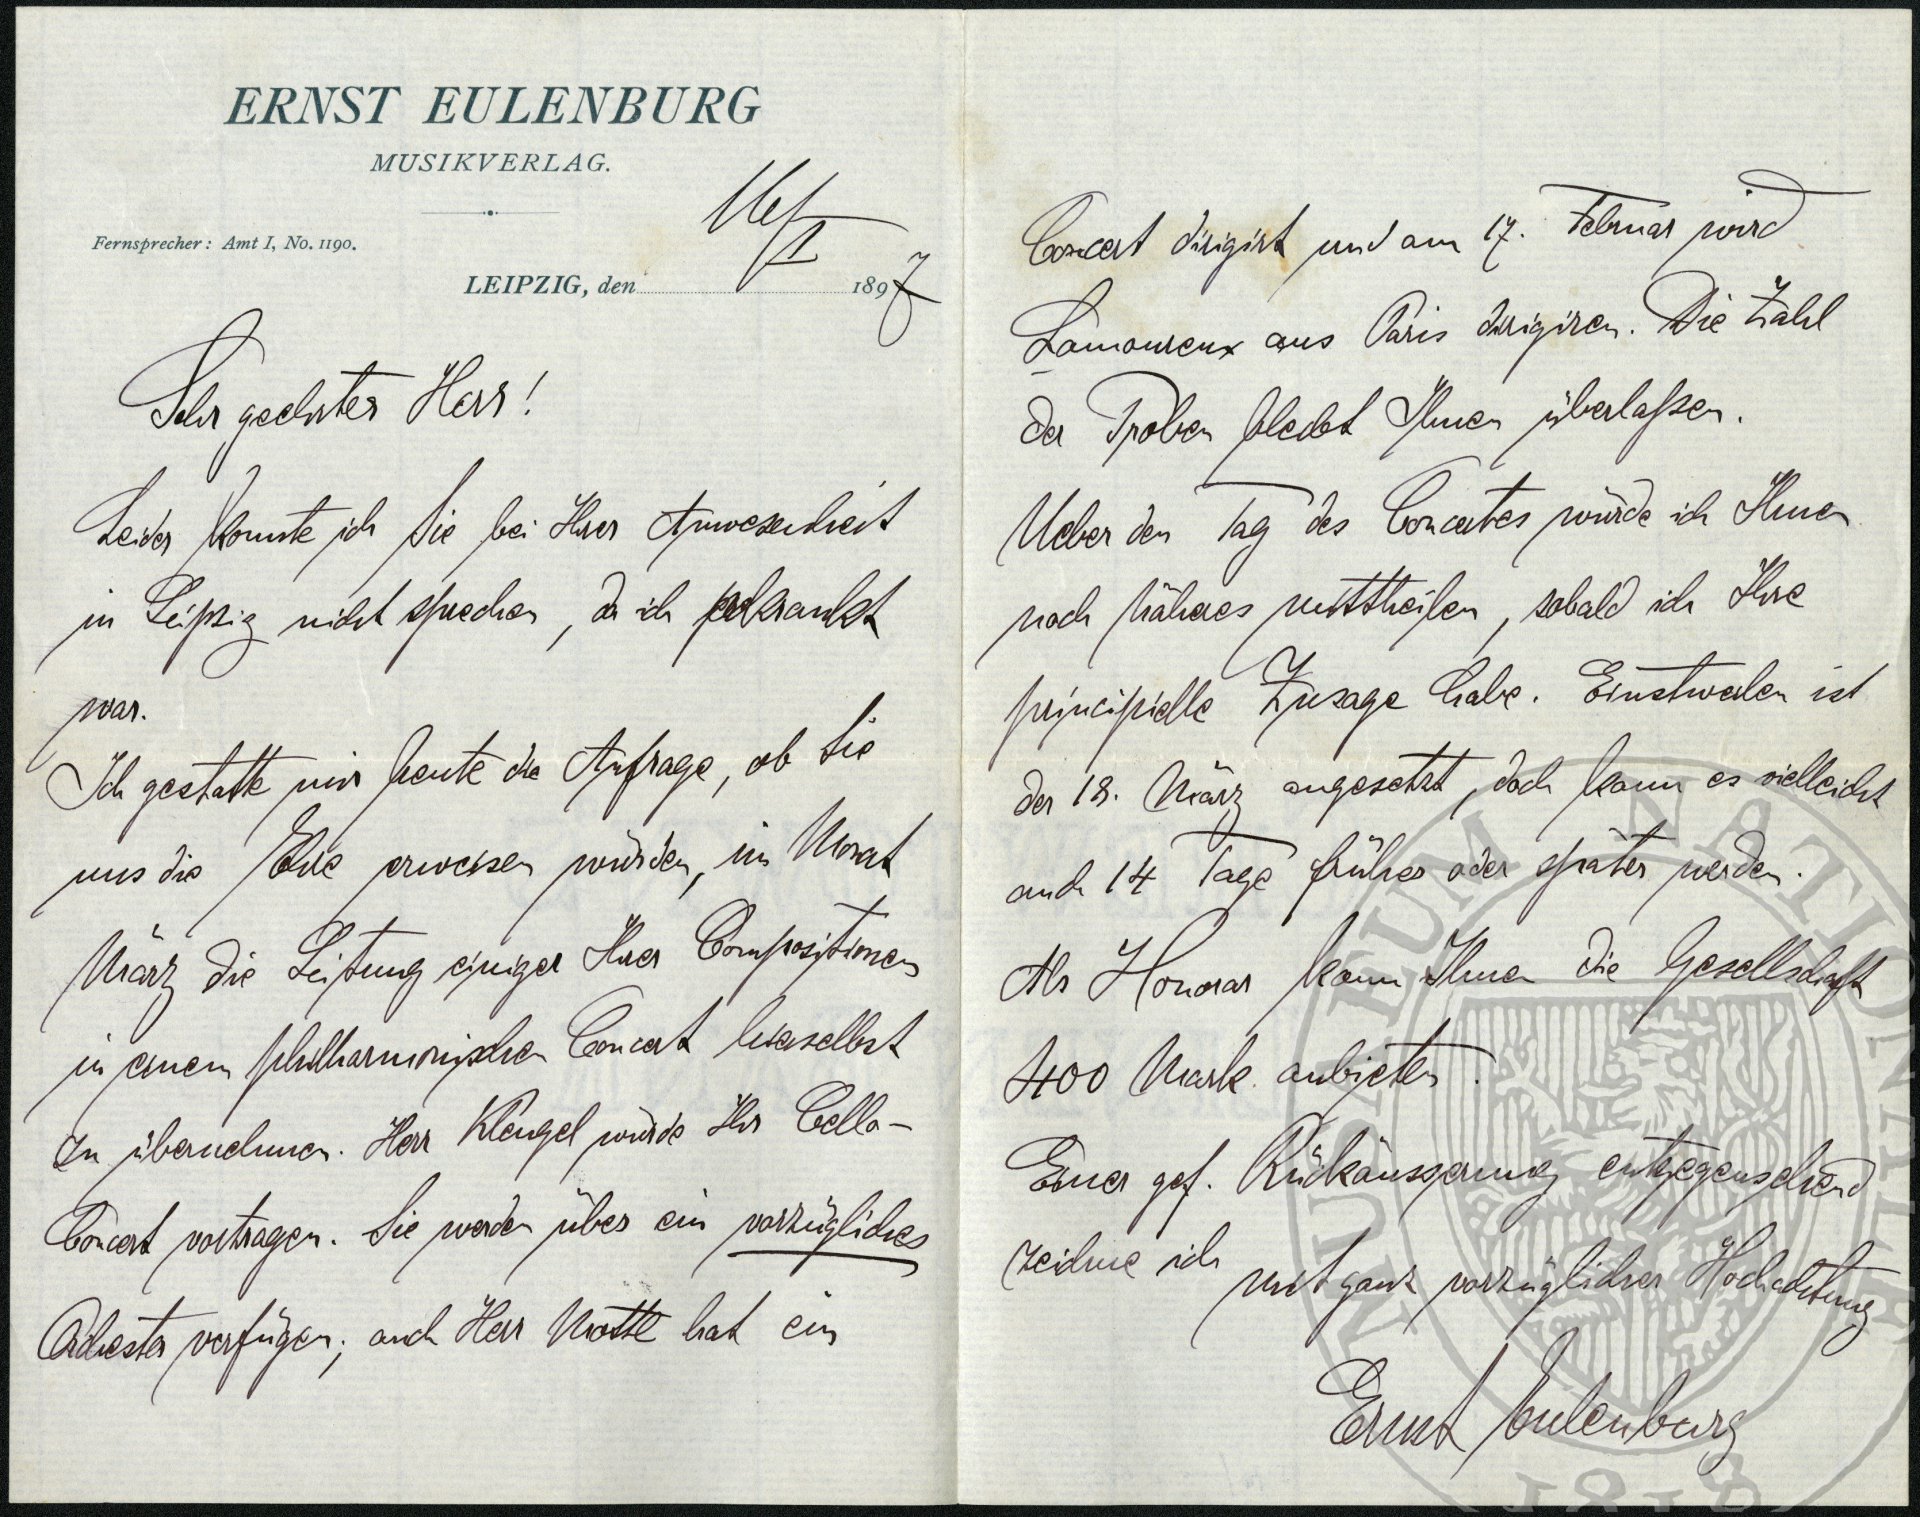 ERNST EULENBURG
MUSIKVERLAG.
Fernsprecher: Amt I, No. 1190.
LEIPZIG, den 16/1 1897
Sehr geehrter Herr!
Leider konnte ich Sie bei Ihrer Anwesenheit
in Leipzig nicht sprechen, da ich erkrankt
war.
Ich gestatte mir heute die Anfrage, ob Sie
uns die Ehre erweisen würden, im Monat
März die Leitung einiger Ihrer Compositionen
in einem philharmonischen Concert hierselbst
zu übernehmen. Herr Klengel würde Ihr Cello-
Concert vortragen. Sie werden über ein vorzügliches
Orchester verfügen; auch Herr Mottl hat ein
Concert dirigirt und am 17. Februar wird
Lamoureux aus Paris dirigiren. Die Zahl
der Proben bleibt Ihnen überlaßen.
Ueber den Tag des Concertes würde ich Ihnen
noch Näheres mittheilen, sobald ich Ihre
principielle Zusage habe. Einstweilen ist
der 18. März angesetzt, doch kann es vielleicht
auch 14 Tage früher oder später werden.
Als Honorar kann Ihnen die Gesellschaft
400 Mark anbieten.
Einer gef. Rückäusserung entgegensehend
zeichne ich
mit ganz vorzüglicher Hochachtung
Ernst Eulenburg
MUSEUM NATIONALE
1818